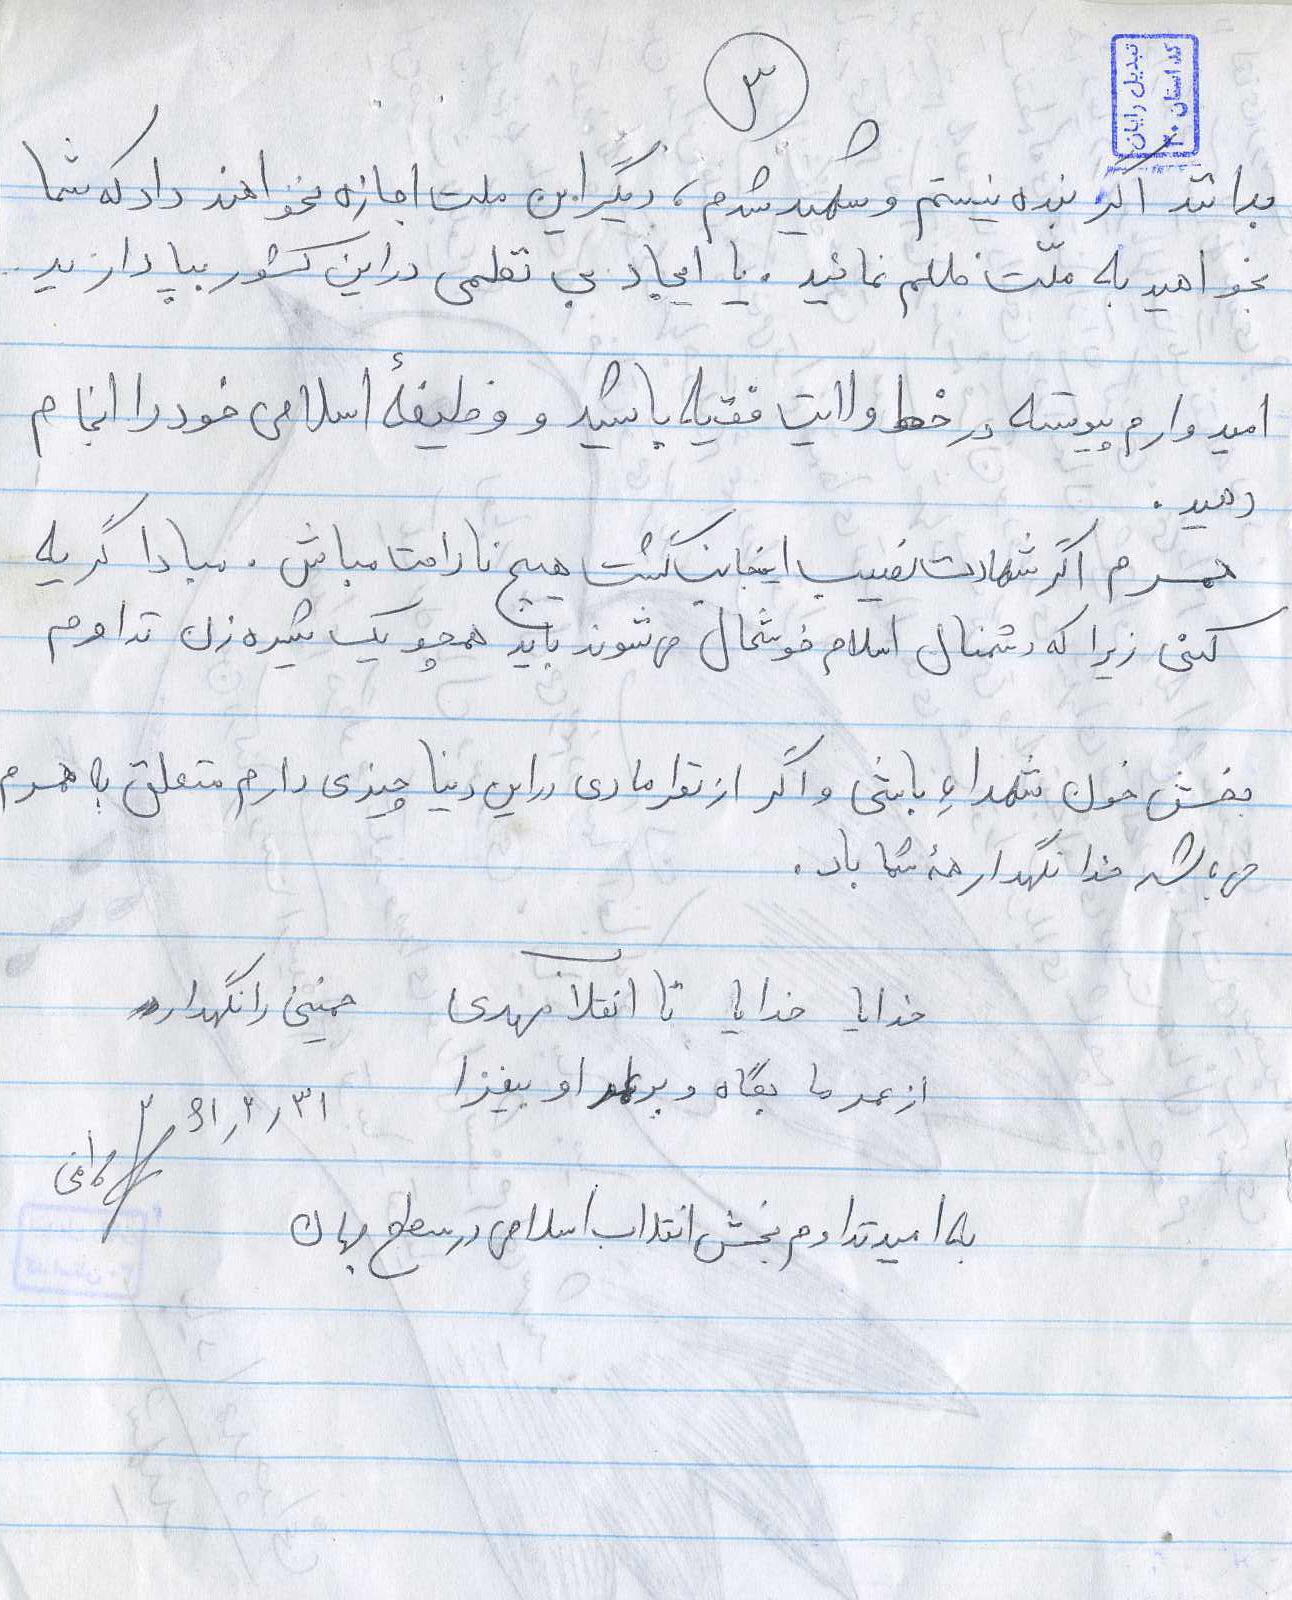 ۳
تبدیل رایان
کد استان ۲۰
بدانند اگر بنده نیستم و شهید شدم، دیگر این ملت اجازه نخواهند داد که شما
بخواهید به ملّت ظلم نمائید. یا ایجاد بی نظمی در این کشور بپا دارید
امیدوارم پیوسته در خط ولایت فقیه باشید و وظیفهٔ اسلامی خود را انجام
دهید.
همسرم اگر شهادت نصیب اینجانب گشت هیچ ناراحت مباش. مبادا گریه
کنی زیرا که دشمنان اسلام خوشحال میشوند باید همچو یک شیره زن تداوم
بخش خون شهداء باشی و اگر از نظر مادی در این دنیا چیزی دارم متعلق به همسرم
میباشد خدا نگهدار همهٔ شما باد.
خدایا خدایا تا انقلاب مهدی خمینی را نگهدار
از عمر ما بکاه و بر عمر او بیفزا
۶۱/۲/۳۱
به امید تداوم بخش انقلاب اسلامی در سطح جهان